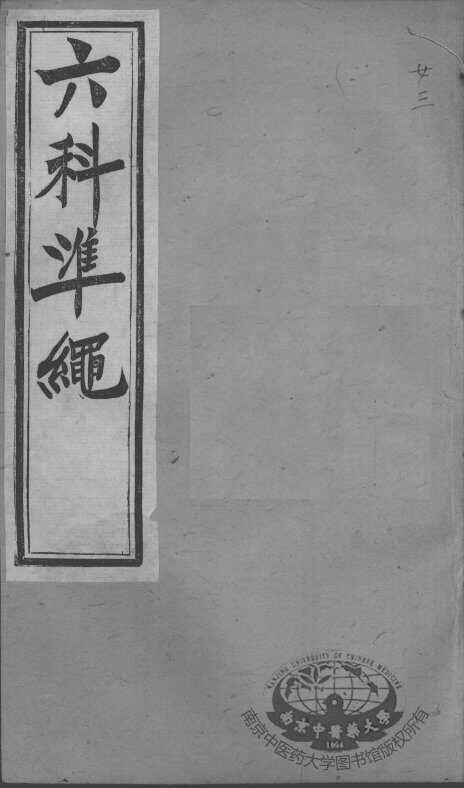 六科準繩
廿三
NANJING UNIVERSITY OF CHINESE MEDICINE
南京中醫藥大學
1954
南京中医药大学图书馆版权所有